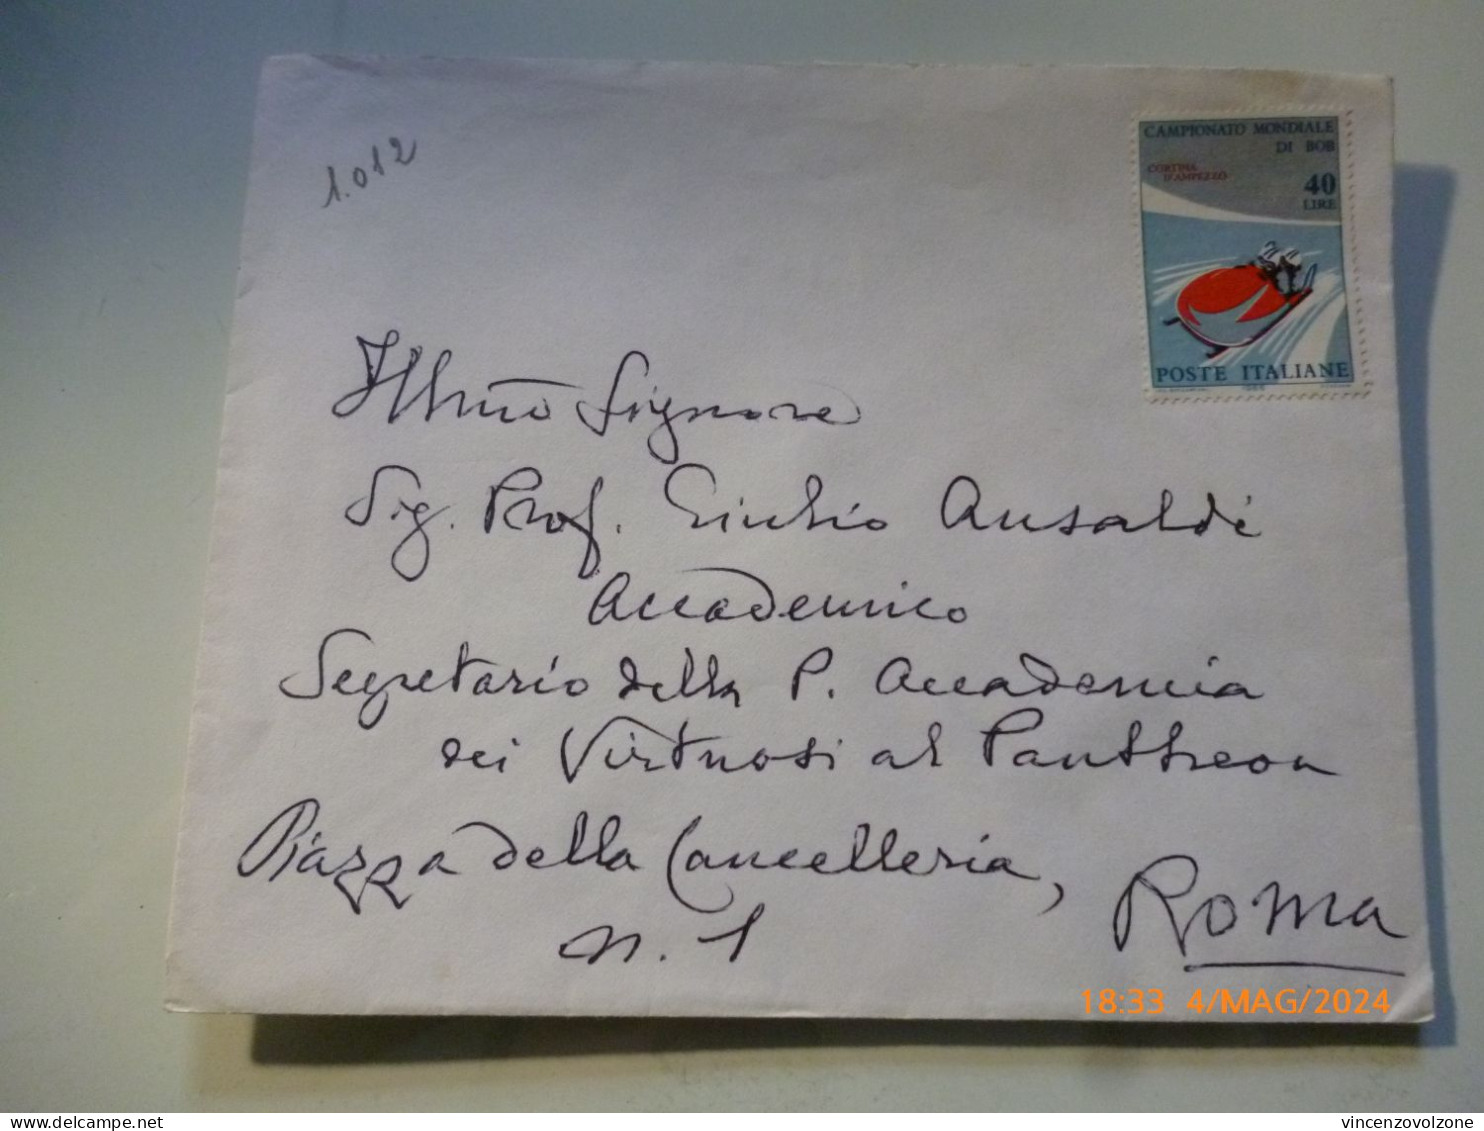 1.012
CAMPIONATO MONDIALE
DI BOB
CORTINA
D'AMPEZZO
40
LIRE
POSTE ITALIANE
1966
Illmo Signore
Sig. Prof. Giulio Ansaldi
Accademico
Segretario della P. Accademia
dei Virtuosi al Panthheon
Piazza della Cancelleria,
n. 1
Roma
18:33 4/MAG/2024
vincenzovolzone